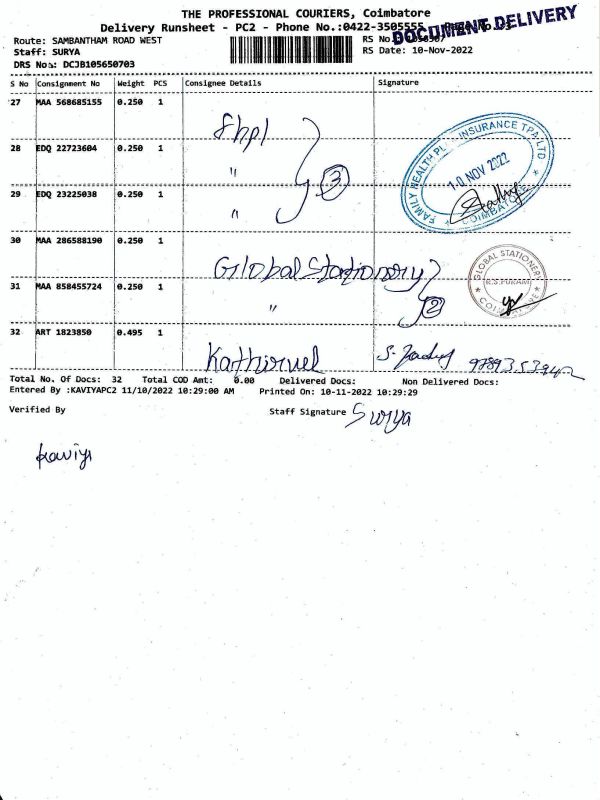 THE PROFESSIONAL COURIERS, Coimbatore
Delivery Runsheet - PC2 - Phone No.:0422-3505555
DOCUMENT DELIVERY
Route: SAMBANTHAM ROAD WEST
RS No.:
Staff: SURYA
RS Date: 10-Nov-2022
DRS No.: DCJB105650703
S No Consignment No Weight PCS Consignee Details Signature
27 MAA 568685155 0.250 1 fhpl
28 EDQ 22723604 0.250 1 "
3
29 EDQ 23225038 0.250 1 "
FAMILY HEALTH PLAN INSURANCE TPA LTD
10 NOV 2022
COIMBATORE
30 MAA 286588190 0.250 1 Global Stationery
31 MAA 858455724 0.250 1 "
2
GLOBAL STATIONERY
R.S.PURAM
COIMBATORE
32 ART 1823850 0.495 1 Kathirvel
Total No. Of Docs: 32 Total COD Amt: 0.00 Delivered Docs: Non Delivered Docs:
Entered By :KAVIYAPC2 11/10/2022 10:29:00 AM Printed On: 10-11-2022 10:29:29
Verified By Staff Signature Surya
kaviya